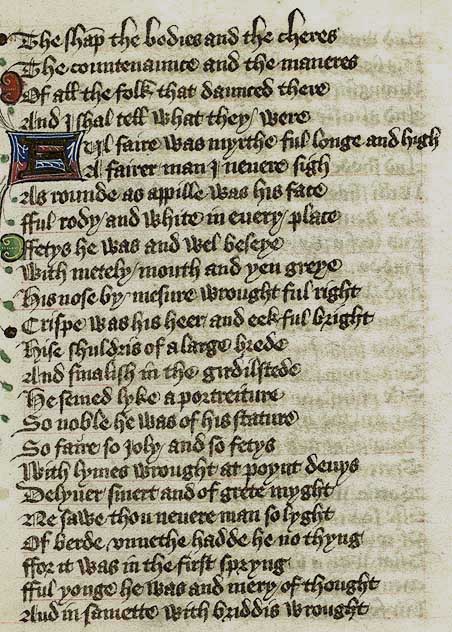 The shap the bodies and the cheres
The countenaunce and the maneres
Of all the folk that daunced there
And I shal tell what they were
Ful faire was myrthe ful longe and high
A fairer man I nevere sigh
As rounde as appille was his face
fful rody and white in euery place
ffetys he was and wel beseye
With metely mouth and yen greye
His nose by mesure wrought ful right
Crispe was his heer and eek ful bright
Hise shuldris of a large brede
And smalish in the girdilstede
He semed lyke a portreiture
So noble he was of his stature
So faire so joly and so fetys
With lymes wrought at poynt deuys
Delyuer smert and of grete myght
Ne sawe thou neuere man so lyght
Of berde vnnethe hadde he no thyng
ffor it was in the first spryng
fful yonge he was and mery of thought
And in samette with briddis wrought